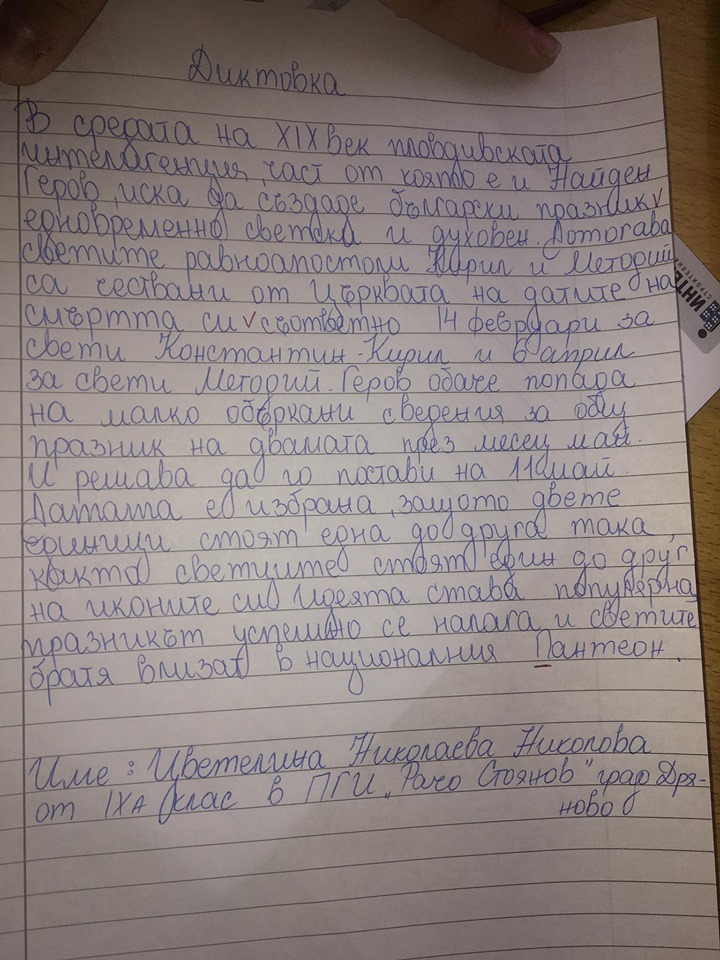 Диктовка
В средата на XIX век пловдивската
интелагенция, част от която е и Найден
Геров, иска да създаде български празник
едновременно светски и духовен. Дотогава
светите равноапостоли Кирил и Методий
са чествани от Църквата на датите на
смъртта си съответно 14 февруари за
свети Константин-Кирил и 6 април
за свети Методий. Геров обаче попада
на малко объркани сведения за общ
празник на двамата през месец май.
И решава да го постави на 11 май.
Датата е избрана, защото двете
единици стоят една до друга така,
както светците стоят един до друг
на иконите си. Идеята става популярна
празникът успешно се налага и светите
братя влизат в националния Пантеон.
Име: Цветелина Николаева Николова
от IXа клас в ПГИ „Рачо Стоянов" град Дря-
ново
ИНТЕ